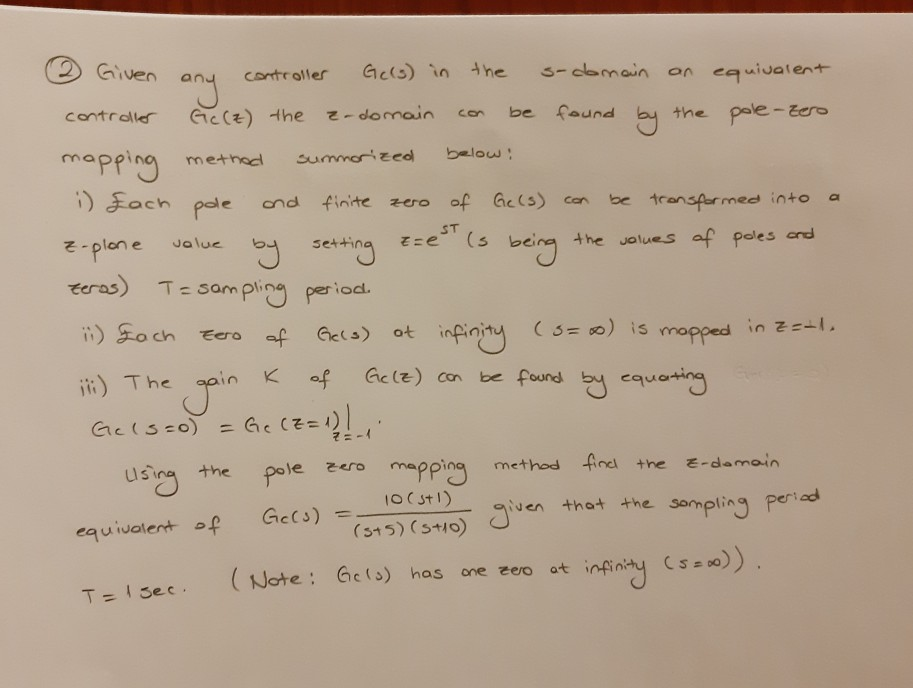 ② Given any controller Gc(s) in the s-domain an equivalent
controller Gc(z) the z-domain can be found by the pole-zero
mapping method summarized below:
i) Each pole and finite zero of Gc(s) can be transformed into a
z-plane value by setting z=e^{ST} (s being the values of poles and
zeros) T = sampling period.
ii) Each zero of Gc(s) at infinity (s=∞) is mapped in z=-1.
iii) The gain K of Gc(z) can be found by equating
Gc(s=0) = Gc(z=1)|_{z=-1}.
Using the pole zero mapping method find the z-domain
equivalent of Gc(s) = 10(s+1) / (s+5)(s+10) given that the sampling period
T = 1 sec. (Note: Gc(s) has one zero at infinity (s=∞)).